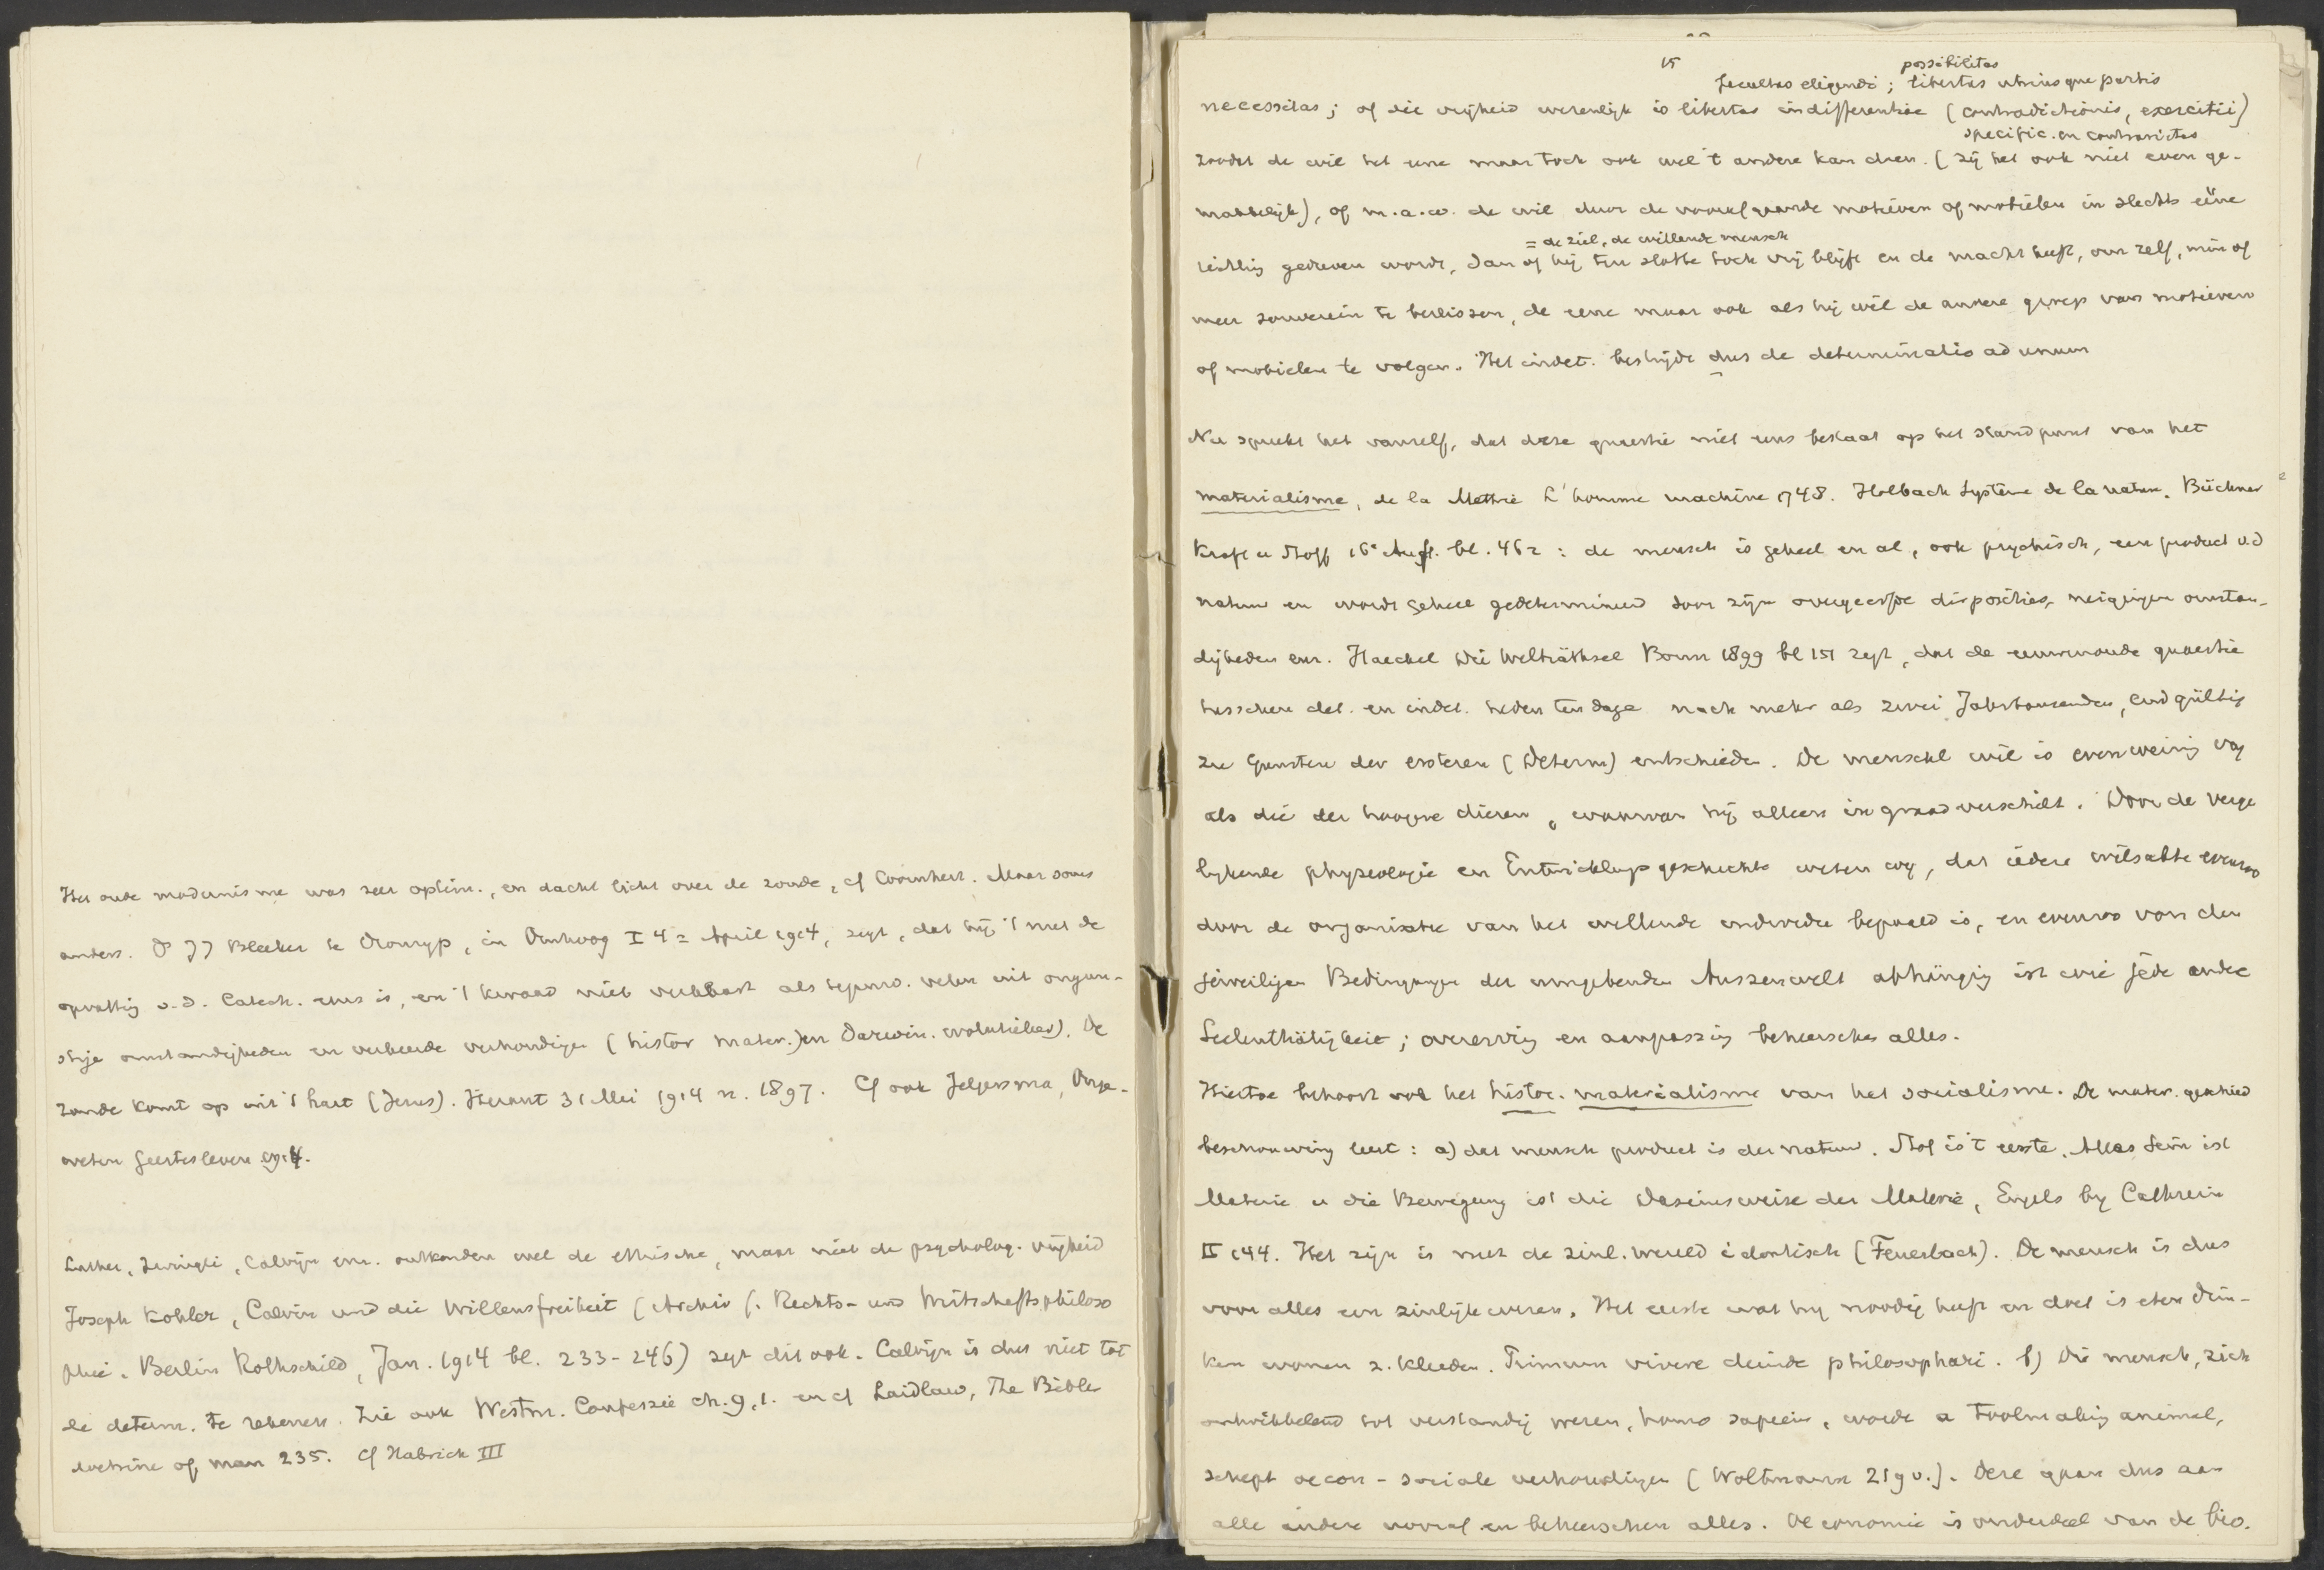 Het oude modernisme was zeer optim., en dacht licht over de zonde, cf Coornhert. Maar soms
anders. Ds JJ Bleeker te Dronryp, in Omhoog I 4 = April 1914, zegt, dat hij 't met de
opvatting v.d. Catech. eens is, en 't kwaad niet verklaart als tegenw. velen uit ongun-
stige omstandigheden en verkeerde verhoudingen (histor mater.) en Darwin. evolutieleer). De
zonde komt op uit 't hart (Jezus). Heraut 31 Mei 1914 n. 1897. Cf ook Jelgersma, Onge-
weten Geestesleven 1914.
Luther, Zwingli, Calvijn enz. ontkenden wel de ethische, maar niet de psycholog. vrijheid
Joseph Kohler, Calvin und die Willensfreiheit (Archiv f. Rechts- und Wirtschaftsphiloso
phie. Berlin Rothschild, Jan. 1914 bl. 233-246) zegt dit ook. Calvijn is dus niet tot
de determ. te rekenen. Zie ook Westm. Confessie ch. 9,1. en cf Laidlaw, The Bible
doctrine of man 235. Cf Habrich III
15
possibilitas
facultas eligendi; libertas utriusque partis
necessitas; of die vrijheid werenlijk is libertas indifferentiae (contradictionis, exercitii)
specific. en contrarietas
zoodat de wil het eene maar toch ook wel 't andere kan doen. (zij het ook niet even ge-
makkelijk), of m.a.w. de wil door de voorafgaande motieven of motieken in slechts eéne
= de ziel, de willende mensch
richting gedreven wordt, dan of hij ten slotte toch vrij blijft en de macht heeft, om zelf, min of
meer souverein te beslissen, de eene maar ook als hij wil de andere groep van motieven
of mobielen te volgen. Het indet. bestrijdt dus de determinatio ad unum
Nu spreekt het vanzelf, dat deze quaestie niet eens bestaat op het standpunt van het
materialisme, de la Mettrie L'homme machine 1748. Holbach Système de la nature. Büchner
Kraft u Stoff 16e Aufl. bl. 462: de mensch is geheel en al, ook psychisch, een product v.d
natuur en wordt geheel gedetermineerd door zijn overgeerfde disposities, neigingen omstan-
digheden enz. Haeckel Die Welträthsel Bonn 1899 bl 151 zegt, dat de eeuwenoude quaestie
tusschen det. en indet. heden ten dage nach mehr als zwei Jahrtausenden, endgültig
zu Gunsten der ersteren (Determ) entschieden. De menschel wil is evenweinig vrij
als die der hoogere dieren, waarvan hij alleen in graad verschilt. Door de verge
lijkende physiologie en Entwicklungsgeschichte weten wij, dat iedere wilsakte evenzoo
door de organisatie van het willende individu bepaald is, en evenzoo von den
jeweiligen Bedingungen der umgebenden Aussenwelt abhängig ist wie jede andre
Seelenthätigkeit; overerving en aanpassing beheerschen alles.
Hiertoe behoort ook het histor. materialisme van het socialisme. De mater. geschied
beschouwing leert: a) dat mensch product is der natuur. Stof is 't eerste. Alles Sein ist
Materie u die Bewegung ist die Daseinsweise der Materie, Engels by Cathrein
II 144. Het zijn is met de zinl. wereld identisch (Feuerbach). De mensch is dus
voor alles een zinlijk wezen. Het eerste wat hij noodig heeft en doet is eten drin-
ken wonen z. kleeden. Primum vivere deinde philosophari. b) Die mensch, zich
ontwikkelend tot verstandig wezen, homo sapiens, wordt a toolmaking animal,
schept oecon - sociale verhoudingen (Woltmann 219 v.). Deze gaan dus aan
alle andere vooraf en beheerschen alles. Oeconomie is onderdeel van de bio.